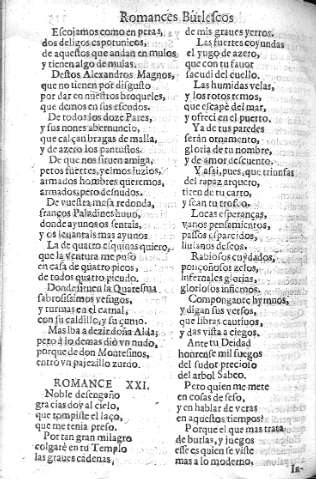 Romances Burlescos
Escojamos como en peras,
dos deligos capotunicos,
de aquestos que andan en mulos
y tienen algo de mulas.
Destos Alexandros Magnos,
que no tienen por disgusto
por dar en nuestros broqueles,
que demos en sus escudos.
De todos los doze Pares,
y sus nones abernuncio,
que calçan bragas de malla,
y de azero los pantuflos.
De que nos siruen amiga,
petos fuertes, yelmos luzios,
armados hombres queremos,
armados, pero desnudos.
De vuestra mesa redonda,
françes Paladines huyo,
donde ayunos os sentais,
y os leuantais mas ayunos
La de quatro esquinas quiero,
que la ventura me puso
en casa de quatro picos,
de todos quatro picudo.
Donde siruen la Quaresma
sabrosissimos vesugos,
y turmas en el carnal,
con su caldillo, y su çumo.
Mas iba a dezir doña Alda;
pero a lo demas dió vn nudo,
porque de don Montesinos,
entrò vn pajezillo zurdo.
ROMANCE XXI.
Noble desengaño
gracias doy al cielo,
que rompiste el laço,
que me tenia preso.
Por tan gran milagro
colgaré en tu Templo
las graues cadenas,
de mis graues yerros.
Las fuertes coyundas
el yugo de azero,
que con tu fauor
sacudi del cuello.
Las humidas velas,
y los rotos remos,
que escapè del mar,
y ofreci en el puerto.
Ya de tus paredes
serán ornamento,
gloria de tu nombre,
y de amor descuento.
Y assi, pues, que triunfas
del rapaz arquero,
tiren de tu carro,
y sean tu trofeo.
Locas esperanças,
vanos pensamientos,
passos esparcidos,
liuianos deseos.
Rabiosos cuydados,
ponçoñosos zelos,
infernales glorias,
gloriosos infiernos.
Compongante hymnos,
y digan sus versos,
que libras cautiuos,
y das vista a ciegos.
Ante tu Deidad
honrense mil fuegos
del sudor precioso
del arbol Sabeo.
Pero quien me mete
en cosas de seso,
y en hablar de veras
en aquestos tiempos?
Porque el que mas trata
de burlas, y juegos
esse es quien se viste
mas a lo moderno,